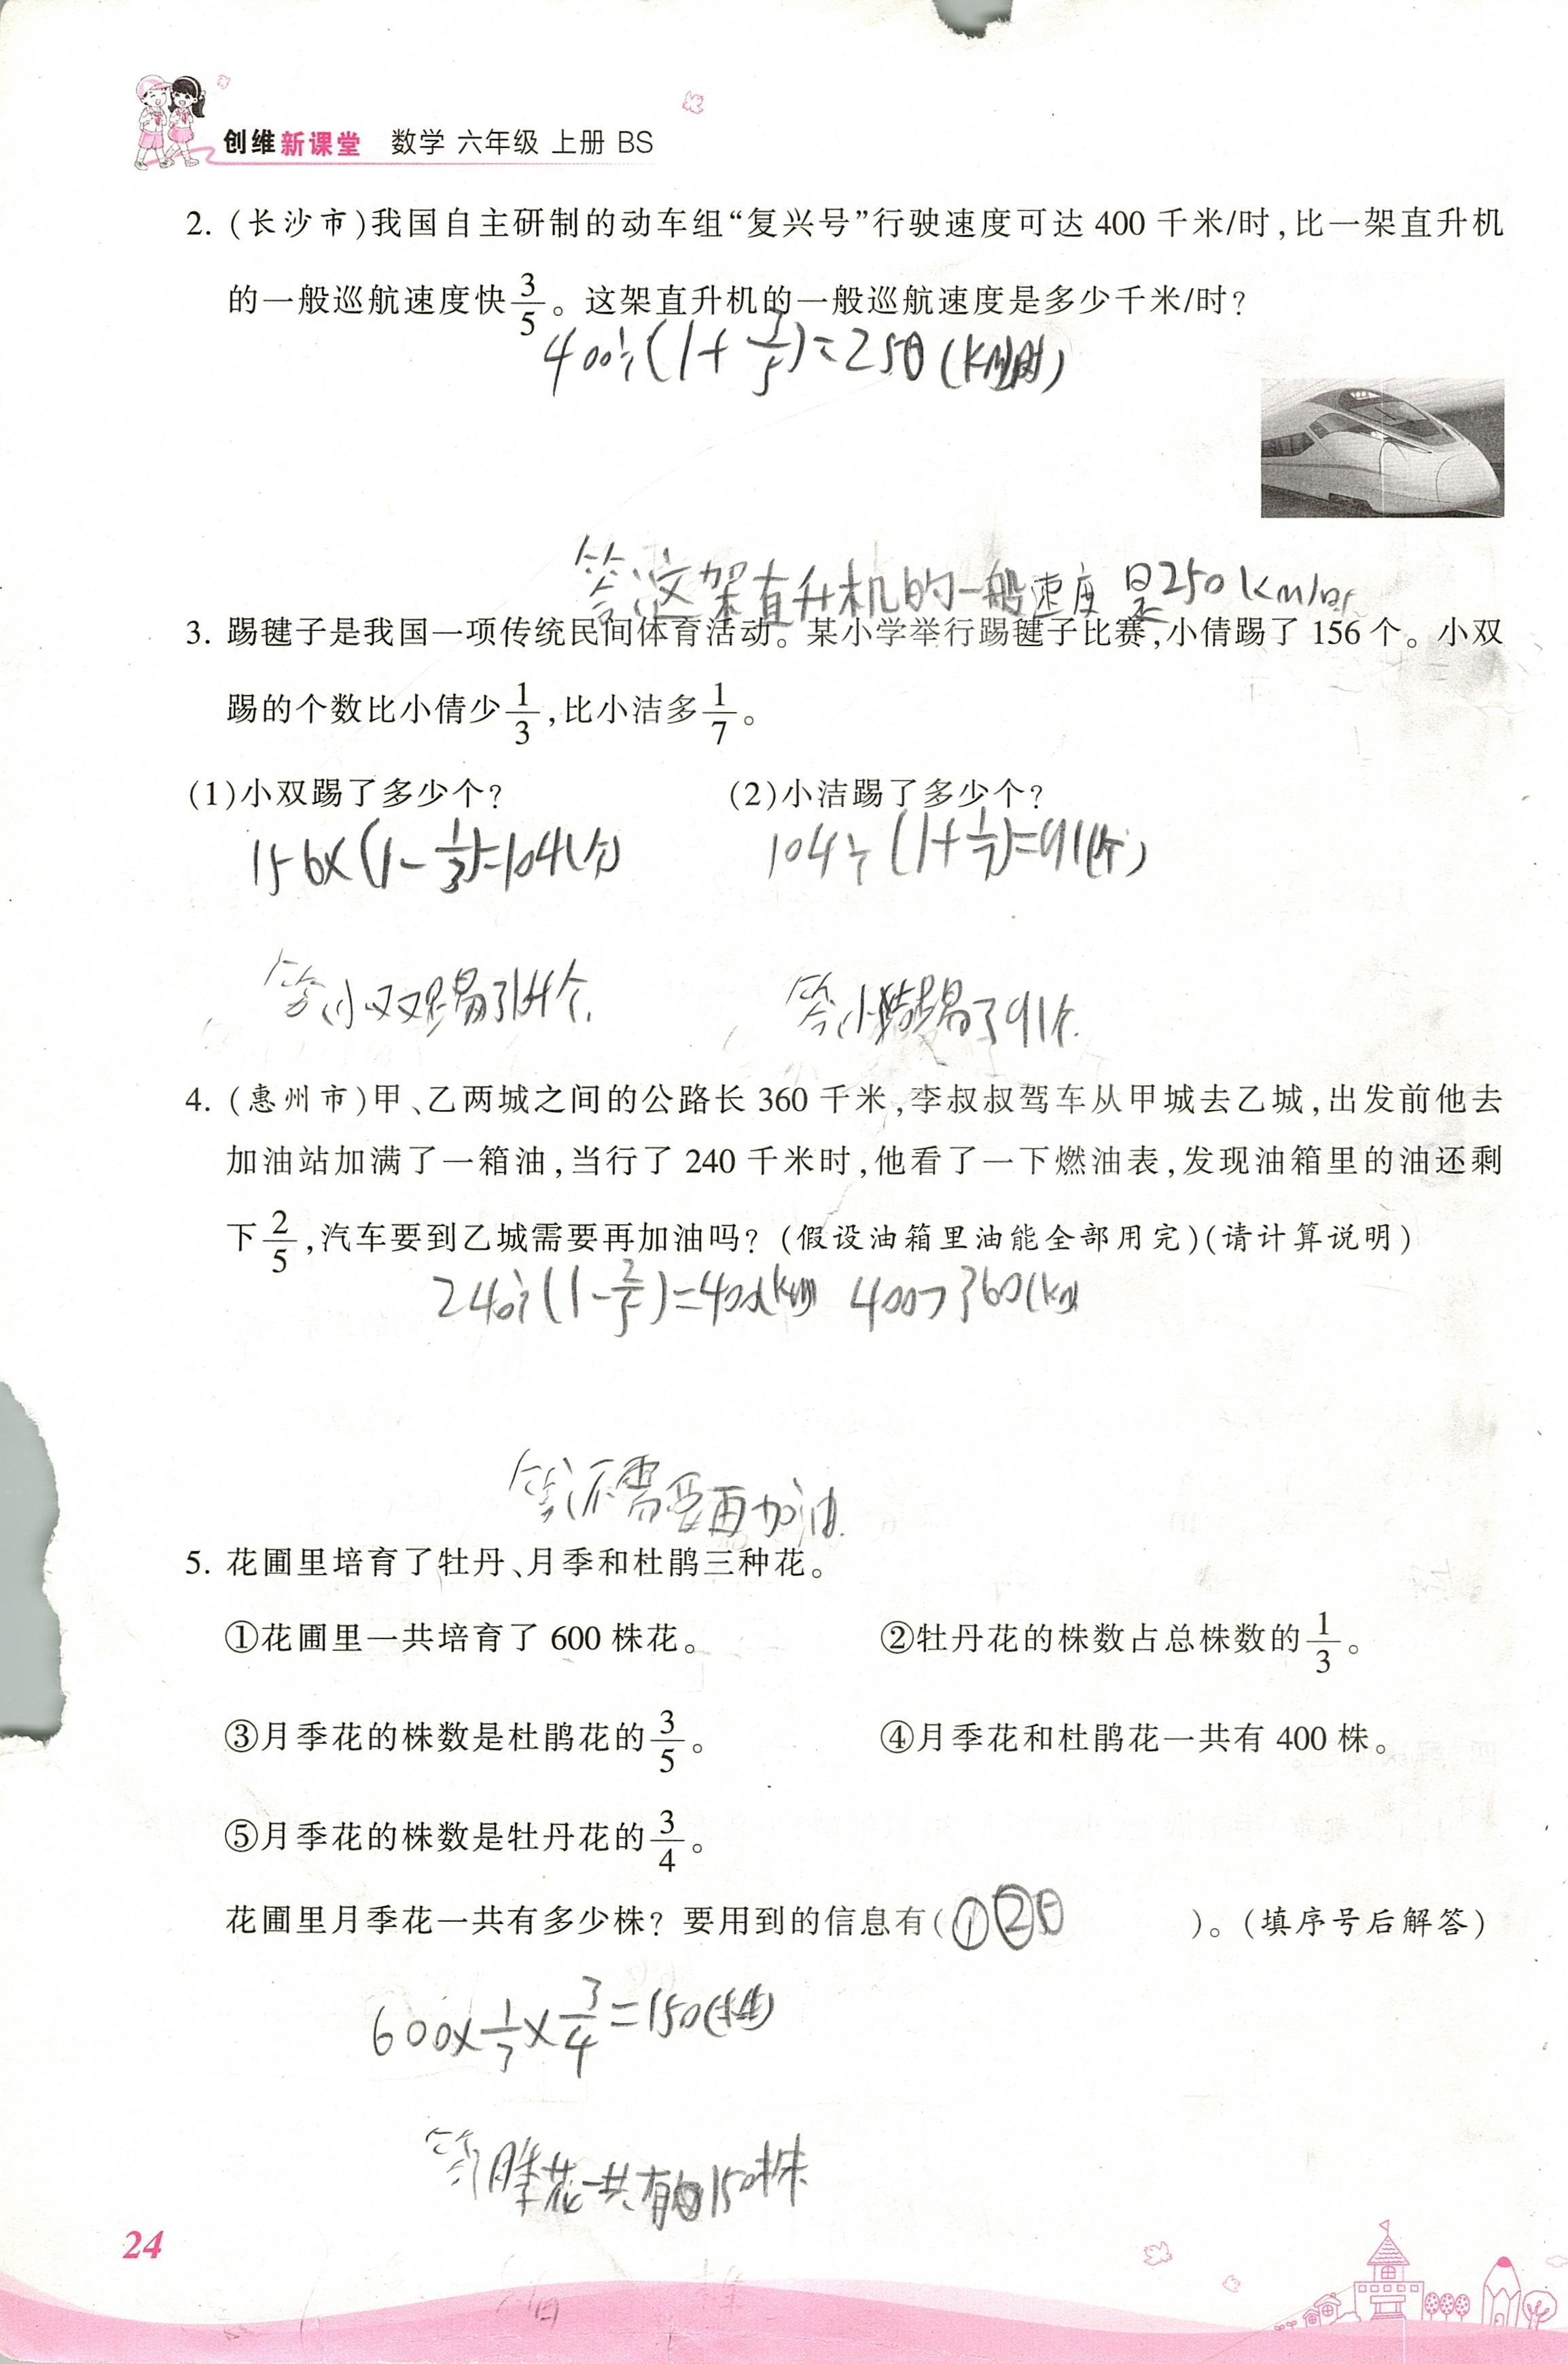 创维新课堂 数学 六年级 上册 BS
2. (长沙市)我国自主研制的动车组“复兴号”行驶速度可达 400 千米/时,比一架直升机
的一般巡航速度快3/5。这架直升机的一般巡航速度是多少千米/时?
400÷(1+3/5)=250(km/时)
答:这架直升机的一般速度是250km/时
3. 踢毽子是我国一项传统民间体育活动。某小学举行踢毽子比赛,小倩踢了 156 个。小双
踢的个数比小倩少1/3,比小洁多1/7。
(1)小双踢了多少个? (2)小洁踢了多少个?
156×(1-1/3)=104(个) 104÷(1+1/7)=91(个)
答:小双踢了104个. 答:小洁踢了91个.
4. (惠州市)甲、乙两城之间的公路长 360 千米,李叔叔驾车从甲城去乙城,出发前他去
加油站加满了一箱油,当行了 240 千米时,他看了一下燃油表,发现油箱里的油还剩
下2/5,汽车要到乙城需要再加油吗? (假设油箱里油能全部用完)(请计算说明)
240÷(1-2/5)=400(km) 400>360(km
答:不需要再加油.
5. 花圃里培育了牡丹、月季和杜鹃三种花。
①花圃里一共培育了 600 株花。 ②牡丹花的株数占总株数的1/3。
③月季花的株数是杜鹃花的3/5。 ④月季花和杜鹃花一共有 400 株。
⑤月季花的株数是牡丹花的3/4。
花圃里月季花一共有多少株? 要用到的信息有(①② )。(填序号后解答)
600×1/3×3/4=150(株)
答:月季花一共有150株
24